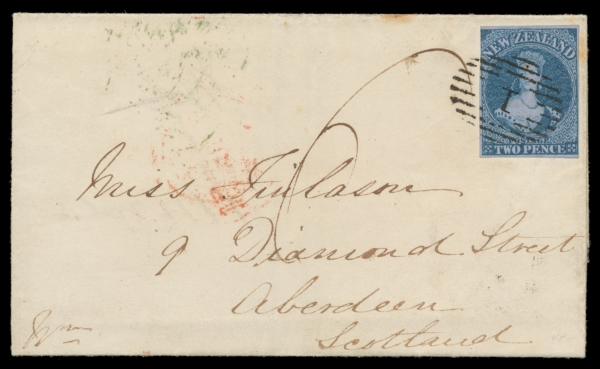 NEW ZEALAND
TWO PENCE
6
Miss Finlason
9 Diamond Street
Aberdeen
Scotland